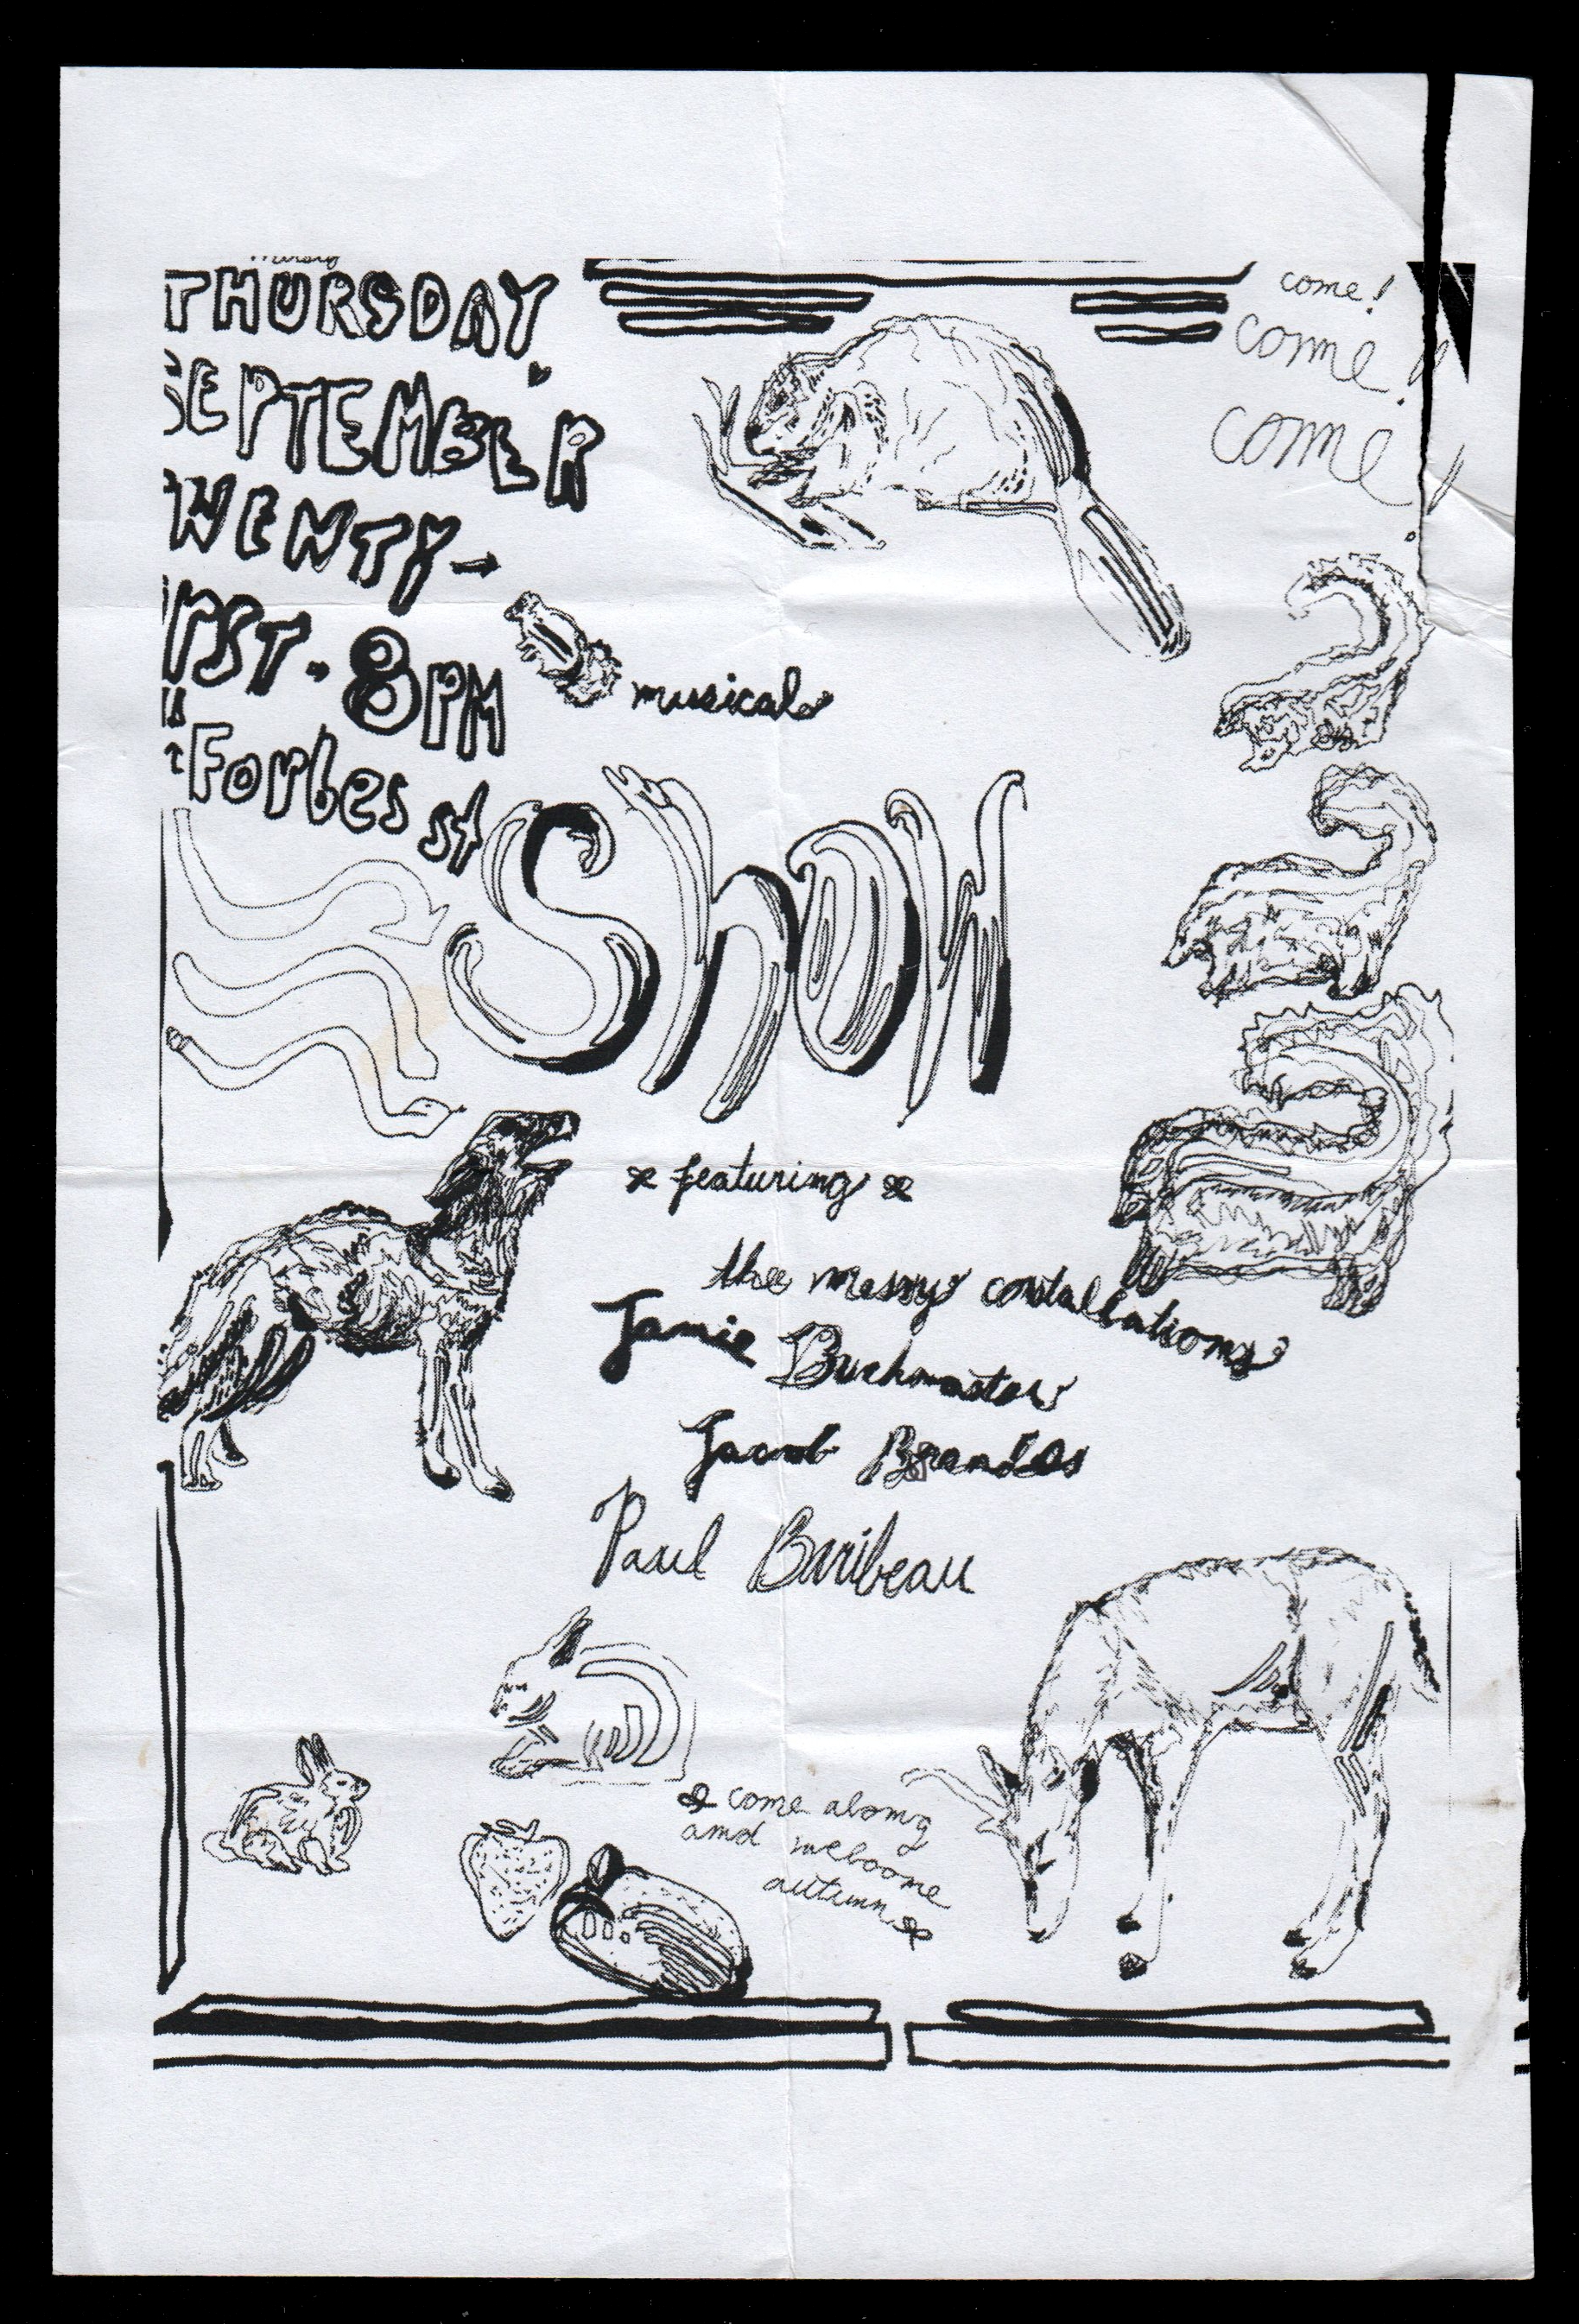 THURSDAY
SEPTEMBER
WENTY-
IRST. 8PM
Forbes st
come!
come!
come!
musical
Show
featuring
the messy constallations
Jamie Buckmaster
Jacob Brandes
Paul Baribeau
come along
and welcome
autumn